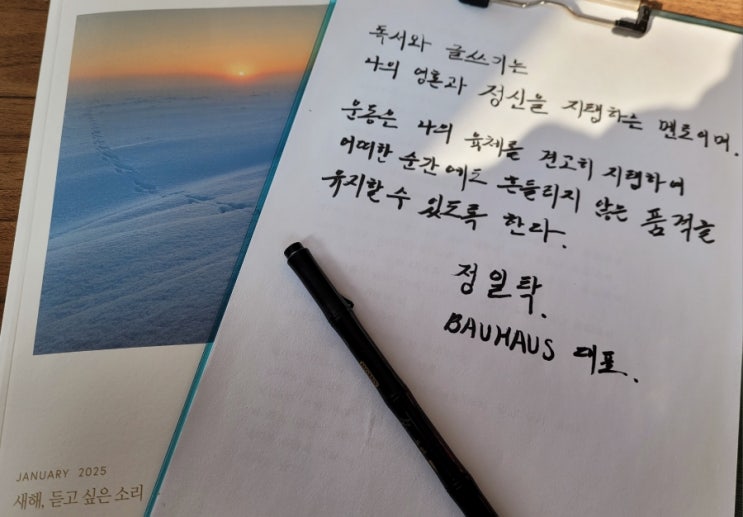 독서와 글쓰기는
나의 영혼과 정신을 지탱하는 멘토이며.
운동은 나의 육체를 견고히 지탱하여
어떠한 순간에도 흔들리지 않는 품격을
유지할 수 있도록 한다.
정일탁.
BAUHAUS 대표.
JANUARY 2025
새해, 듣고 싶은 소리